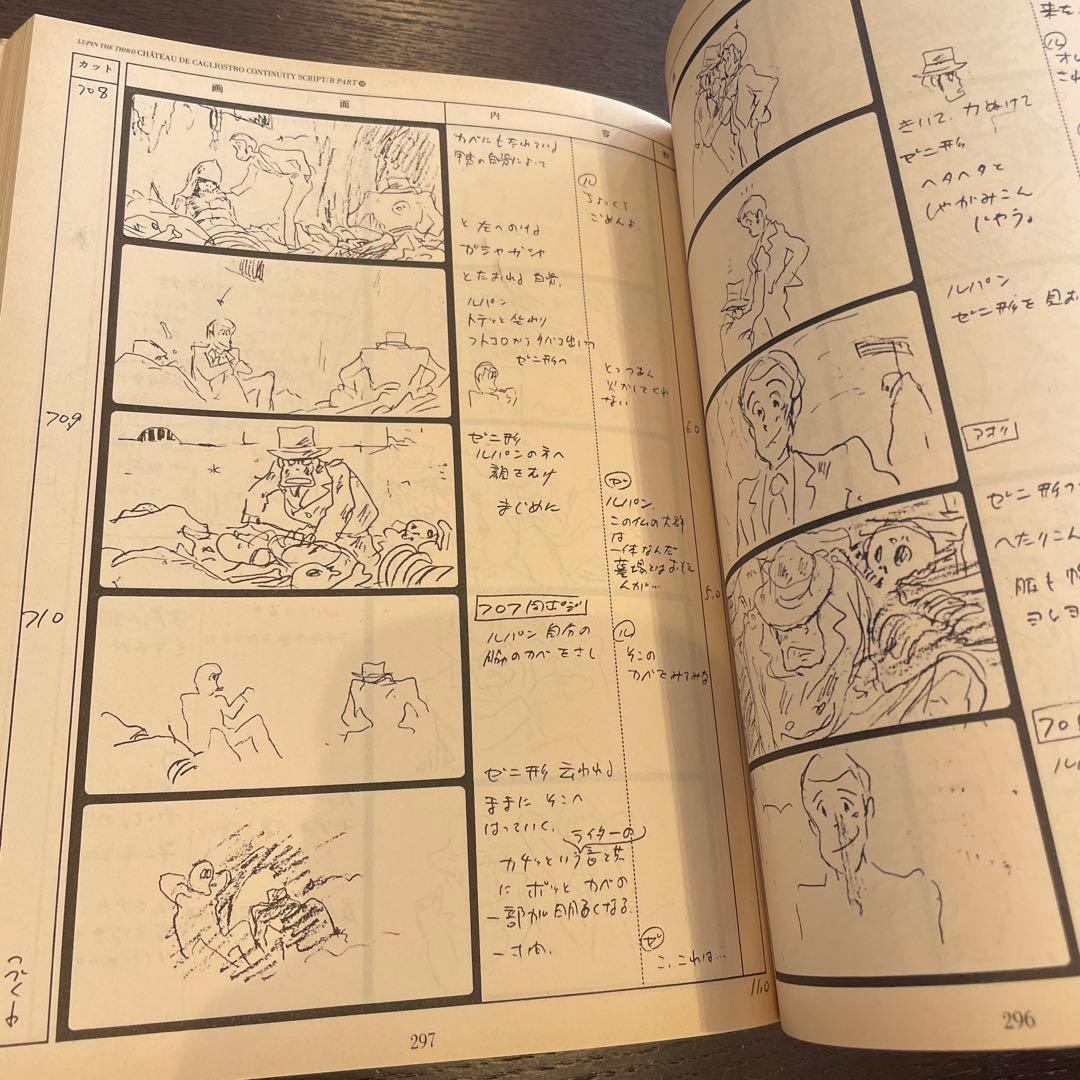 LUPIN THE THIRD CHÂTEAU DE CAGLIOSTRO CONTINUITY SCRIPT/B PART
カット
画面
内容
秒
708
カベにもたれている
と左へのける
ガシャガシャ
とたおれる 白骨。
ルパン
フトコロからタバコ出しつつ
ゼニ形へ
ル
ちょっくら
ごめんよ
とっつぁん
火かしてくれ
ない
6.0
709
ゼニ形
ルパンの方へ
顔をむけ
まじめに
ゼ
ルパン、
この仏の大群
は
一体なんだ
墓場とはおもえ
んが…
5.0
710
707 同ポジ
ルパン 自分の
脇のカベをさし
ル
そこの
カベをみてみな
ゼニ形 云われる
ままに そこへ
はっていく。
ライターの
カチッという音と共
に ポッと カベの
一部が明るくなる。
ゼ
こ、これは…
11.0
つづく
297
きいて、力ぬけて
ゼニ形
ヘタヘタと
しゃがみこん
じゃう。
ルパン
ゼニ形を見お
アオリ
へたりこん
服も
ヨレヨ
296